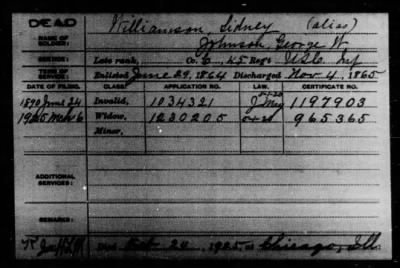 DEAD
NAME OF SOLDIER: Williamson, Sidney (alias)
Johnson, George W.
SERVICE: Late rank, Co. G, 45 Reg't U.S.C. Inf
TERM OF SERVICE: Enlisted June 29, 1864 Discharged Nov. 4, 1865
DATE OF FILING. CLASS. APPLICATION NO. LAW. CERTIFICATE NO.
1890 June 24 Invalid, 1034321 1197903
1925 Mch 6 Widow, 1230205 965365
Minor,
ADDITIONAL SERVICES:
REMARKS:
Died Feb. 24, 1925, at Chicago, Ill